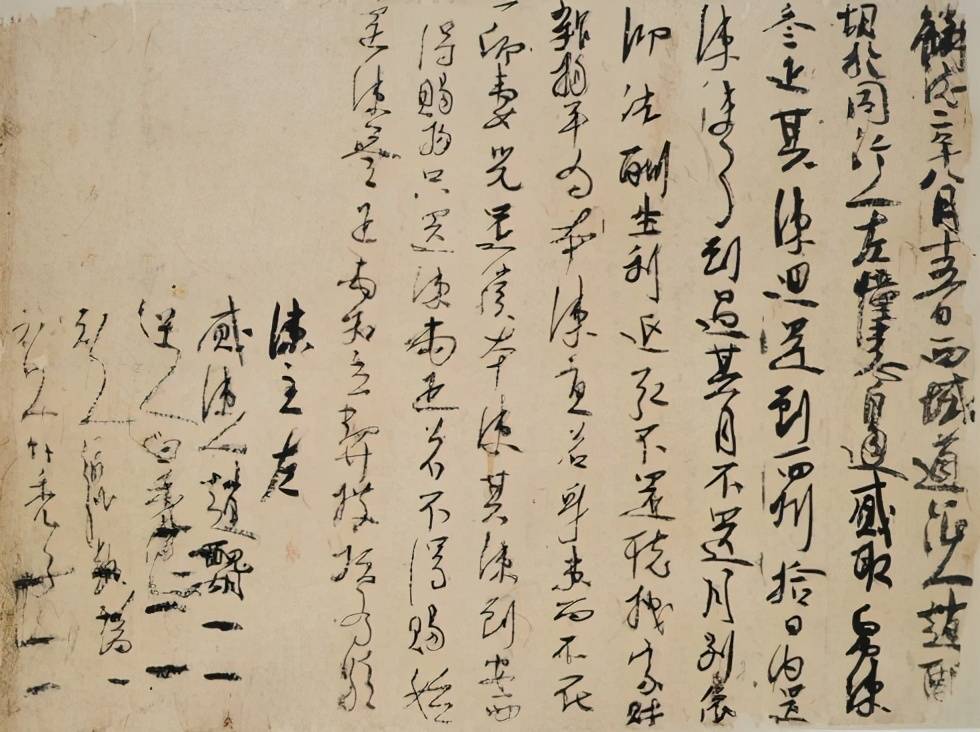 麟德二年八月十五日西域道征人趙醜
胡於同行人左憧憙邊貸取帛練
叁疋其練迴還到西州拾日內還
練使了到過其月不還月別依
鄉法酬生利延引不還聽拽家財
雜物平為本練直若身東西不在
一仰妻兒還償本練其練到安西
得賜物只還練兩疋若不得賜始
還練叁疋兩和立契獲指為驗
練主左
貸練人趙醜胡
保人白秃子
知見人張軌端
知見人竹秃子